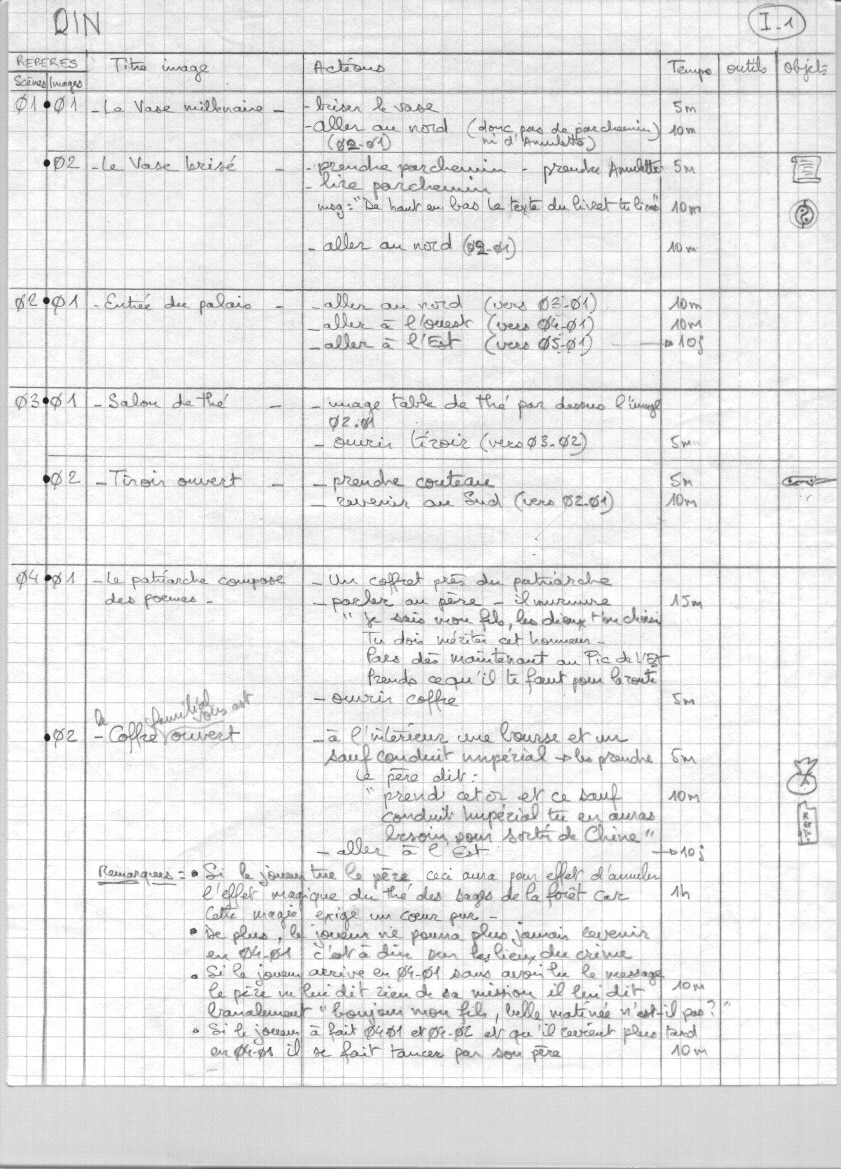 QIN
I-1
REPERES Titre image Actions Temps outils objets
Scènes Images
Ø1 • Ø1 - Le Vase millenaire - - briser le vase 5m
- aller au nord (donc pas de parchemin 10m
(Ø2-Ø1) ni d'Amulette)
• Ø2 - Le Vase brisé - - prendre parchemin - prendre Amulette 5m
- lire parchemin
msg="De haut en bas le texte du livret tu liras" 10m
- aller au nord (Ø2-Ø1) 10m
Ø2 • Ø1 - Entrée du palais - - aller au nord (vers Ø3-Ø1) 10m
- aller à l'ouest (vers Ø4-Ø1) 10m
- aller à l'Est (vers Ø5-Ø1) → 10j
Ø3 • Ø1 - Salon de thé - - image table de thé par dessus l'image
Ø2.Ø1
- ouvrir tiroir (vers Ø3-Ø2) 5m
• Ø2 - Tiroir ouvert - - prendre couteau 5m
- revenir au Sud (vers Ø2-Ø1) 10m
Ø4 • Ø1 - Le patriarche compose - Un coffret près du patriarche
des poemes - - parler au père - il murmure 15m
" Je sais mon fils, les dieux t'on choisi
Tu dois mériter cet honneur -
Pars dès maintenant au Pic de l'Est
Prends ce qu'il te faut pour la route
- ouvrir coffre 5m
le familial vous est
• Ø2 - Coffre ouvert - à l'intérieur une bourse et un
sauf conduit impérial → les prendre 5m
Le père dit :
" prend cet or et ce sauf 10m
conduit Impérial tu en auras
besoin pour sortir de Chine "
- aller à l'Est → 10j
Remarques = • Si le joueur tue le père ceci aura pour effet d'annuler
l'effet magique du thé des sages de la forêt car 1h
cette magie exige un cœur pur -
• De plus, le joueur ne pourra plus jamais revenir
en Ø4-Ø1 c'est à dire sur les lieux du crime
• Si le joueur arrive en Ø4-Ø1 sans avoir lu le message
le père ne lui dit rien de sa mission il lui dit 10m
banalement " bonjour mon fils, belle matinée n'est-il pas ? "
• Si le joueur à fait Ø4Ø1 et Ø4-Ø2 et qu'il revient plus tard
en Ø4-Ø1 il se fait tancer par son père 10m